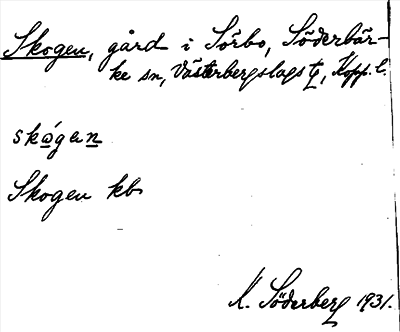 Skogen, gård i Sörbo, Söderbär-
ke sn, Västerbergslags tg, Kopp. l.
skógen
Skogen kb
K. Söderberg 1931.